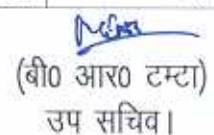 (बी0 आर0 टम्टा)
उप सचिव।